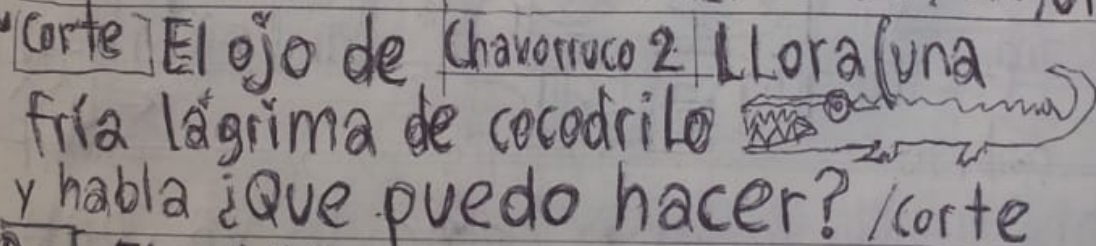 Corte El ojo de Chavorruco 2 LLora una
fría lágrima de cocodriLo
y habla ¿Que puedo hacer? /corte